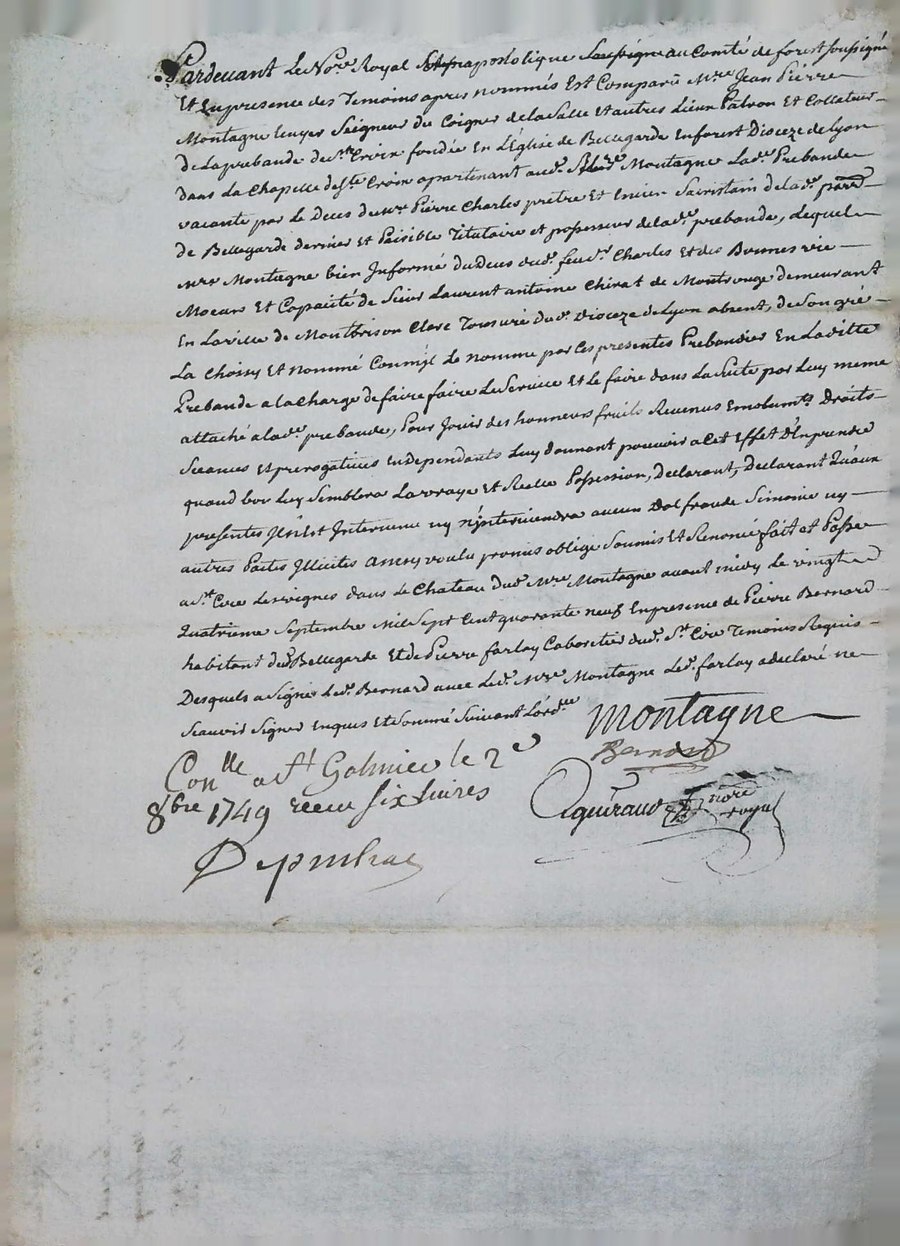 Pardevant Le No.re Royal apostolique au Comté de forest soussigné
Et En presence des Temoins apres nommés Est Comparü M.re Jean Pierre
Montagne Ecuyer Seigneur du Coigner de la Salle et autres Lieux Patron Et Collateur
de La prebande de S.te Croix fondée En L'Eglise de Bellegarde En forest Dioceze de Lyon
dans La Chapelle de S.te Croix apartenant aud. S.r Montagne La d.e Prebande
vacante par le Deces de M.re Pierre Charles prêtre Et ancien Sacristain de la d.e parr.
de Bellegarde dernier Et Paisible Titulaire et possesseur de la d.e prebande, Lequel
M.re Montagne bien Informé du Deces dud. feu S.r Charles Et des Bonnes vie
Moeurs Et Capacité de Sieur Laurent antoine Chirat de Montrouge demeurant
En La ville de Montbrison Clerc Tonsuré dud. Dioceze de Lyon absent, de Son gré
La Choisy Et nommé Comme Il Le nomme par Ces presentes Prebandier En Laditte
Prebande a la Charge de faire faire Le Service Et Le faire dans La Suite par Luy meme
attaché a la d.e prebande, Pour Jouir des honneurs fruits Revenus Emolum.ts Droits
Sceances Et prerogatives En dependants Luy donnant pouvoir a Cet Effet D'En prendre
quand bon Luy Semblera La vraye Et Reelle Possession, declarant, declarant Qu'aux
presentes Il n'Est Intervenu ny n'Interviendra aucun Dol fraude Simonie ny
autres Pactes Illicites ainsy voulu promis obligé Soumis Et Renoncé fait et Passé
a S.t Cire Les vignes dans Le Chateau dud. M.re Montagne avant midy Le vingt
Quatrieme Septembre Mil Sept Cent quarante neuf En presence de Pierre Bernard
habitant dud. Bellegarde Et de Pierre farlay Cabaretier dud. S.t Cire Temoins Requis
Desquels a Signé Led. Bernard avec Led. M.re Montagne Led. farlay a declaré ne
Scavoir Signer Enquis Et Sommé Suivant L'ord.ce
Montagne
Bernard
Con.lle a S.t Galmier le 2.e
8bre 1749 receu six livres
guiraud no.re royal